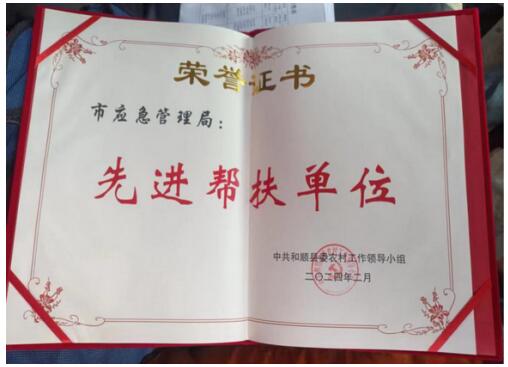 荣誉证书
市应急管理局：
先进帮扶单位
中共和顺县委农村工作领导小组
二〇二四年二月